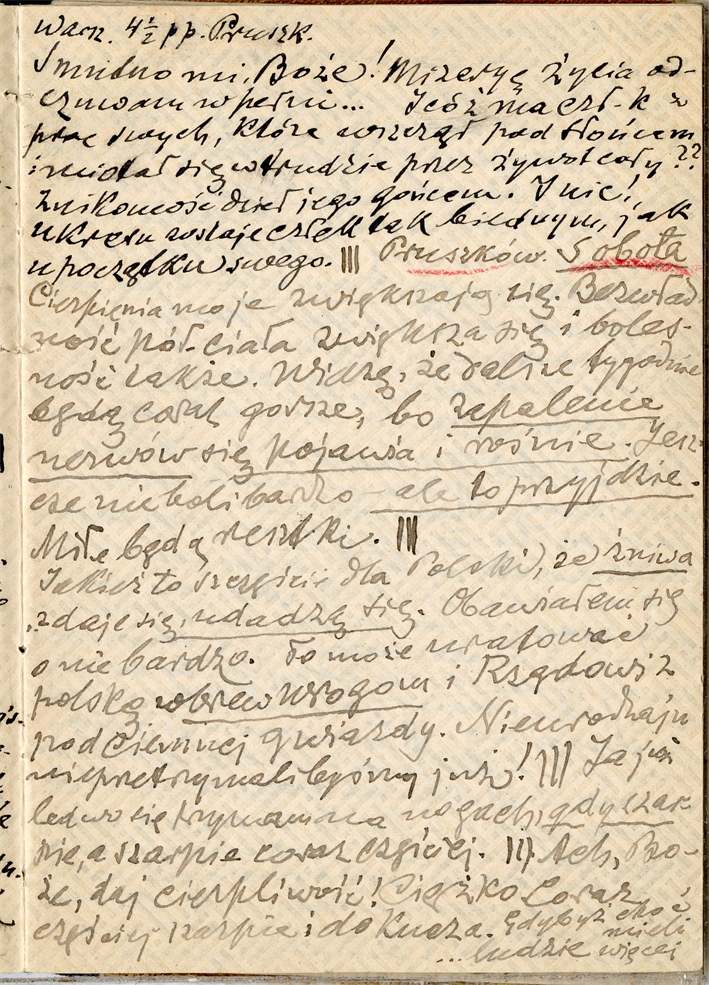 Warsz. 4½ pp. Pruszk.
Smutno mi, Boże! Mizerję życia od-
czuwam w pełni... I cóż ma czł-k z
prac swych, które wszczął pod słońcem
i miotał się w trudzie przez żywot cały??
Znikomość dzieł jego gońcem. I nic!,
u kresu zostaje człek tak biednym, jak
u początku swego. ||| Pruszków. Sobota
Cierpienia moje zwiększają się. Bezwład-
ność pół-ciała zwiększa się i boles-
ność także. Widzę, że dalsze tygodnie
będą coraz gorsze, bo zapalenie
nerwów się pojawia i rośnie. Jesz-
cze nie boli bardzo – ale to przyjdzie.
Miłe będą resztki. |||
Jakież to szczęście dla Polski, że żniwa
zdaje się, udadzą się. Obawiałem się
o nie bardzo. To może uratować
polskę wbrew wrogom i Rządowi z
pod ciemnej gwiazdy. Nieurodzaju
nieprzetrzymalibyśmy już! ||| Ja już
ledwo się trzymam na nogach, gdy szar-
pie, a szarpie coraz częściej. ||| Ach, Bo-
że, daj cierpliwość! Ciężko Coraz
częściej szarpie i dokucza. Gdybyż choć
mieli
...ludzie więcej